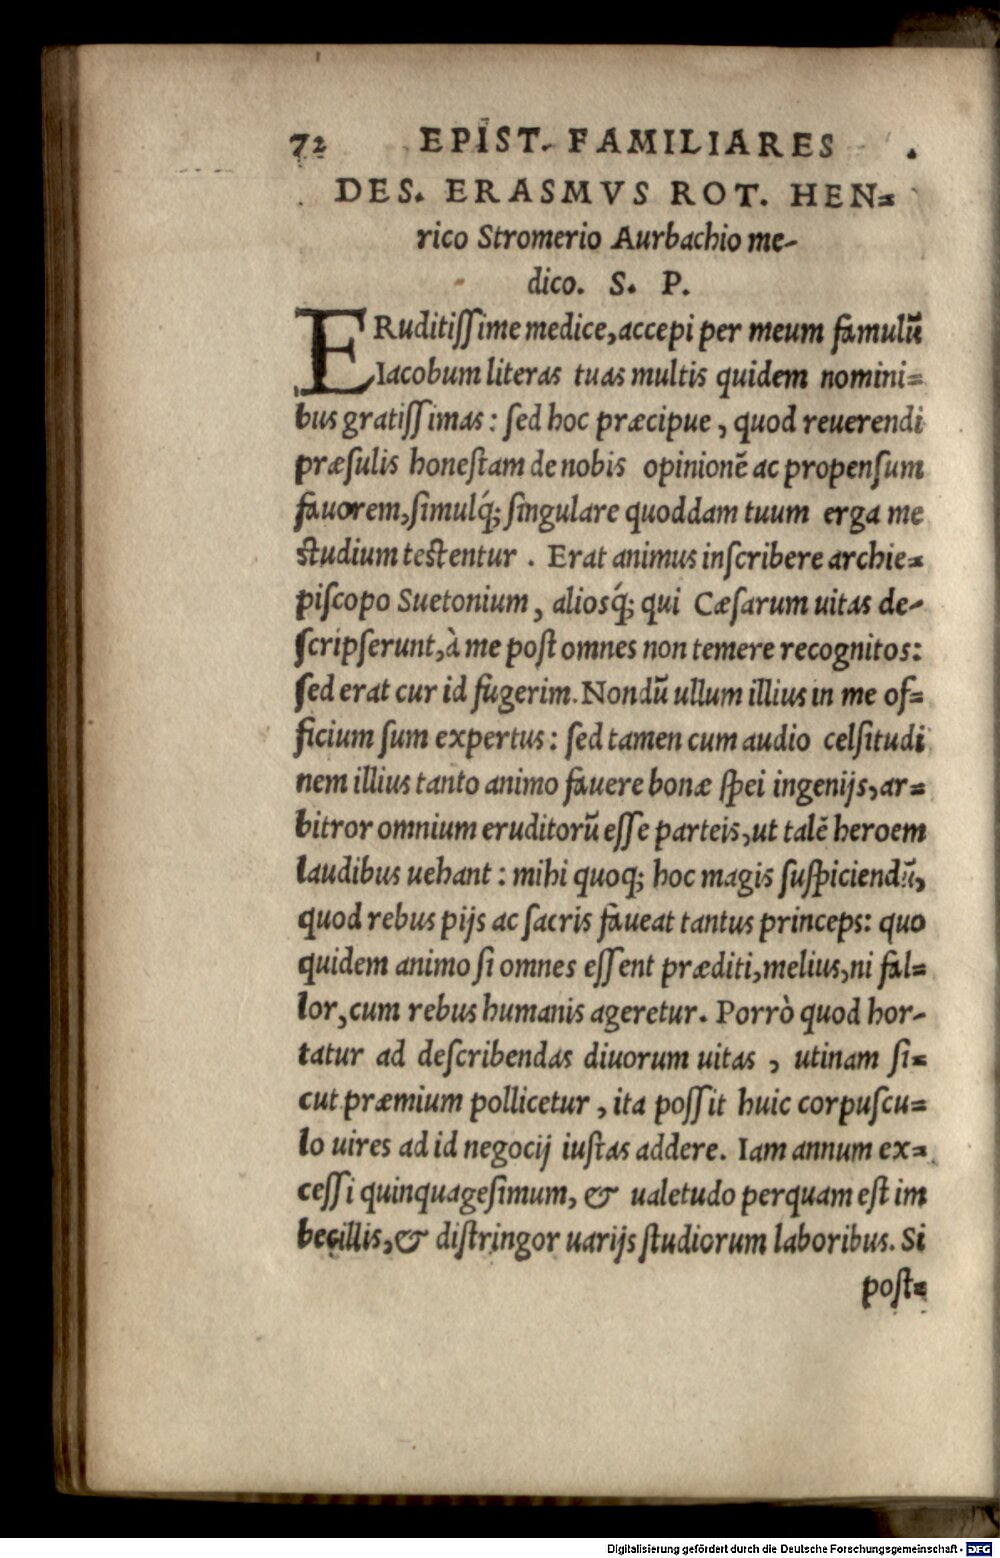 72 EPIST. FAMILIARES
DES. ERASMVS ROT. HEN=
rico Stromerio Aurbachio me-
dico. S. P.
ERuditiſſime medice, accepi per meum famulũ
Iacobum literas tuas multis quidem nomini=
bus gratiſſimas: ſed hoc præcipue, quod reuerendi
præſulis honeſtam de nobis opinionẽ ac propenſum
fauorem, ſimulq́; ſingulare quoddam tuum erga me
ſtudium teſtentur. Erat animus inſcribere archie=
piſcopo Suetonium, aliosq́; qui Cæſarum uitas de-
ſcripſerunt, à me poſt omnes non temere recognitos:
ſed erat cur id fugerim. Nondũ ullum illius in me of=
ficium ſum expertus: ſed tamen cum audio celſitudi
nem illius tanto animo fauere bonæ ſpei ingenijs, ar=
bitror omnium eruditorũ eſſe parteis, ut talẽ heroem
laudibus uehant: mihi quoq; hoc magis ſuſpiciendũ,
quod rebus pijs ac ſacris faueat tantus princeps: quo
quidem animo ſi omnes eſſent præditi, melius, ni fal=
lor, cum rebus humanis ageretur. Porrò quod hor-
tatur ad deſcribendas diuorum uitas, utinam ſi=
cut præmium pollicetur, ita poſſit huic corpuſcu=
lo uires ad id negocij iuſtas addere. Iam annum ex=
ceſſi quinquageſimum, & ualetudo perquam eſt im
becillis, & diſtringor uarijs ſtudiorum laboribus. Si
poſt=
Digitalisierung gefördert durch die Deutsche Forschungsgemeinschaft - DFG